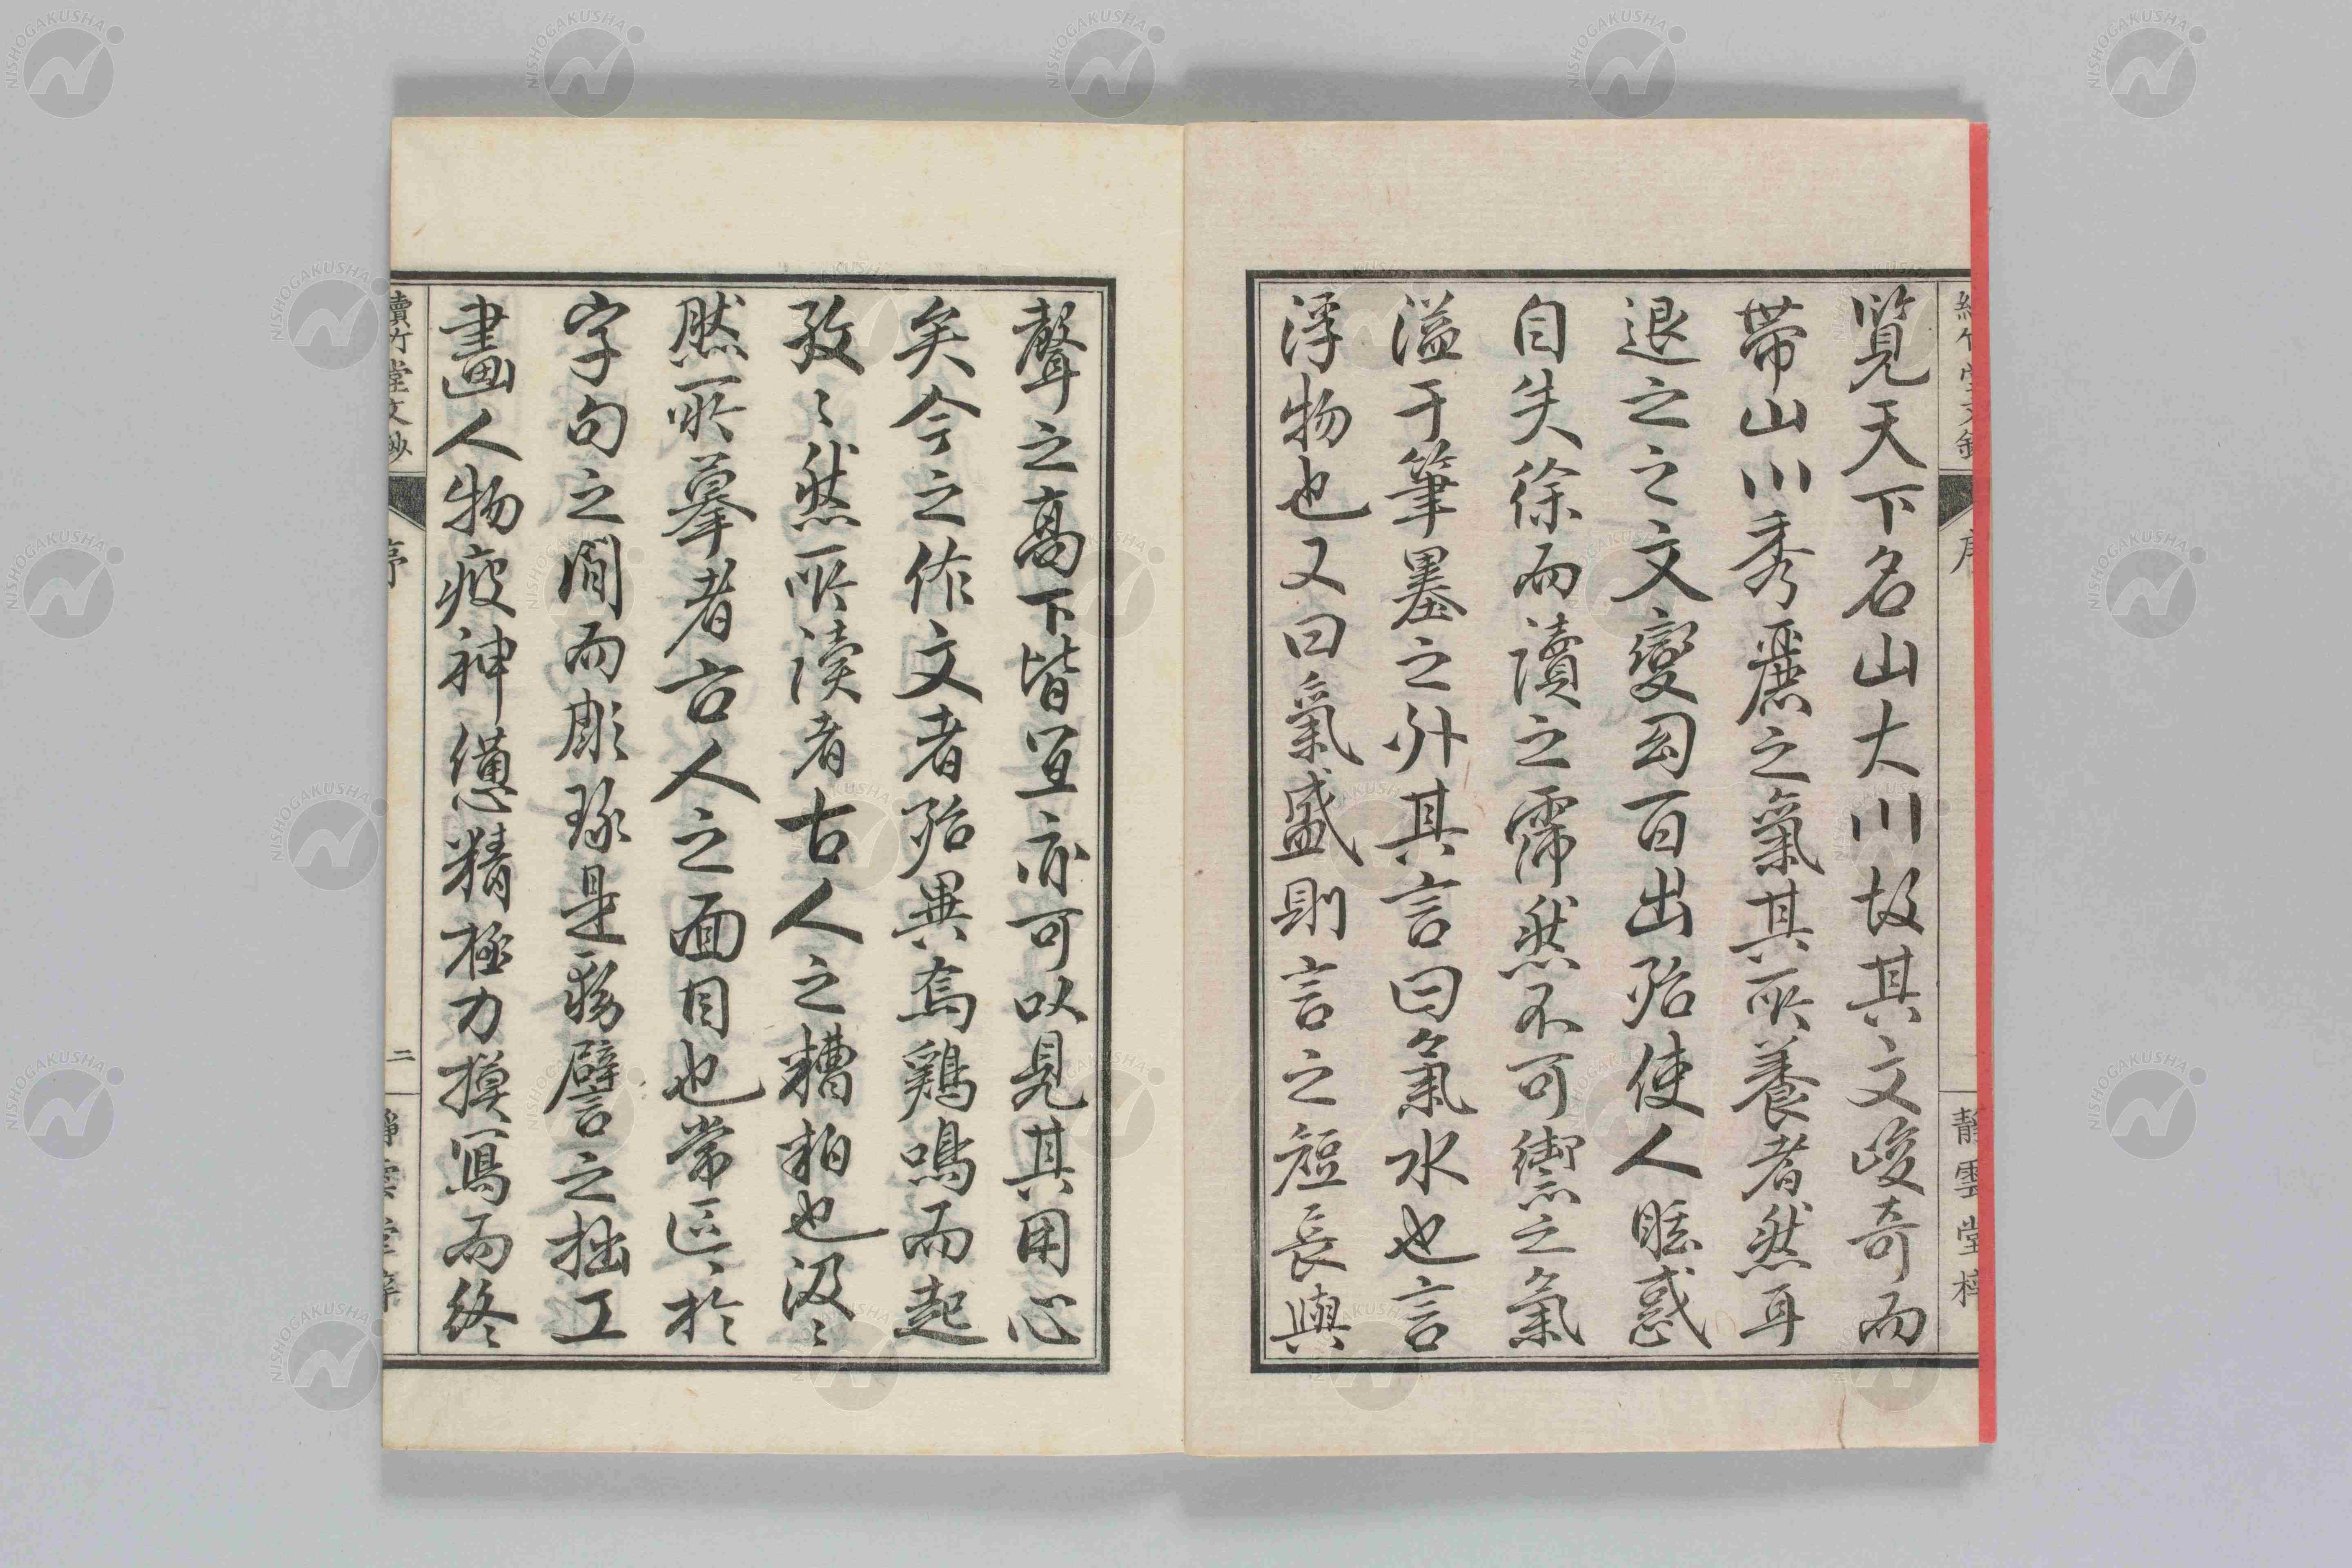 靜雲堂梓
覧天下名山大川故其文峻奇而
帯山川秀麗之氣其所養者然耳
退之之文變幻百出殆使人眩惑
自失徐而讀之霈然不可禦之氣
溢于筆墨之外其言曰氣水也言
浮物也又曰氣盛則言之短長與
聲之高下皆宜亦可以見其用心
矣今之作文者殆異焉鶏鳴而起
孜〻然所讀者古人之糟粕也汲〻
然所摹者古人之面目也常區〻於
字句之間而彫琢是務譬之拙工
畫人物疲神憊精極力摸寫而終
續竹堂文鈔
序
二
NISHOGAKUSHA